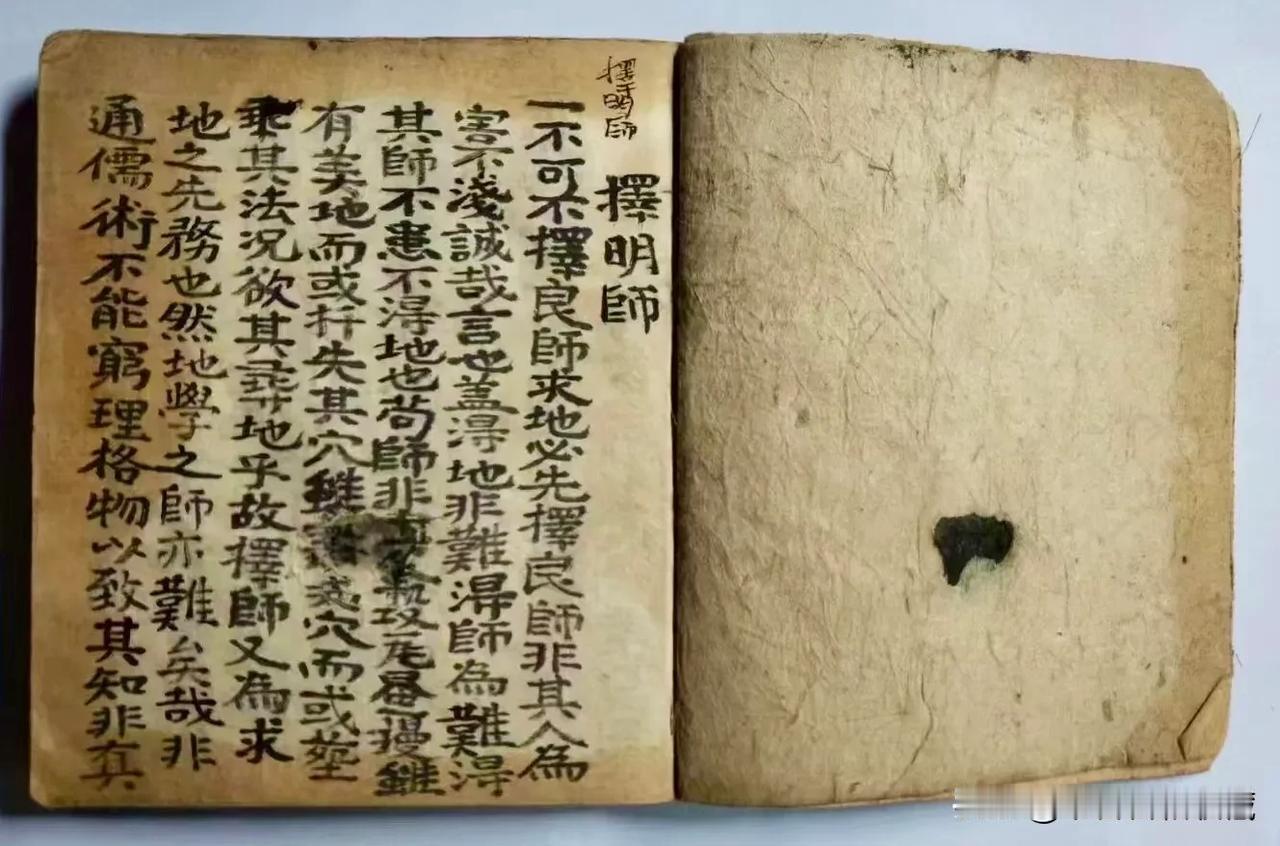 擇明師
擇明師
一不可不擇良師求地必先擇良師非其人為
害不淺誠哉言也盖得地非難得師為難得
其師不患不得地也苟師非雖
有美地而或扦失其穴雖穴而或塟
乖其法况欲其尋地乎故擇師又為求
地之先務也然地學之師亦難矣哉非
通儒術不能窮理格物以致其知非真